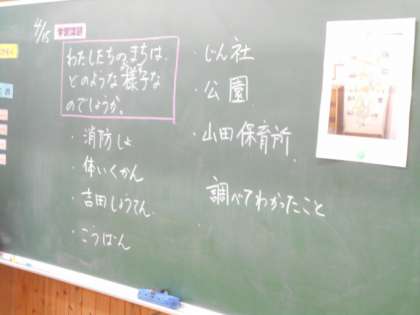 4/15
学習課題
わたしたちのまちは、
どのような様子な
のでしょうか。
・消防しょ
・体いくかん
・吉田しょうてん
・こうばん
・じん社
・公園
・山田保育所
調べてわかったこと
・